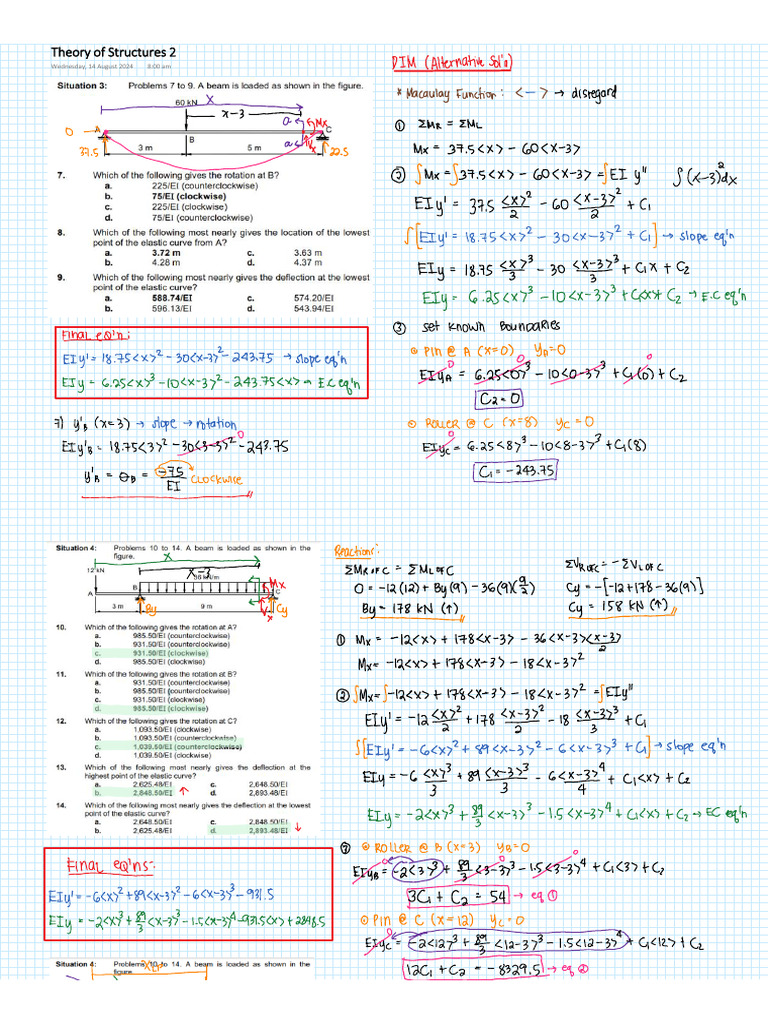 Theory of Structures 2
Wednesday, 14 August 2024 8:00 am
Situation 3: Problems 7 to 9. A beam is loaded as shown in the figure.
60 kN
X
x-3
O
A
B
C
Mx
Vx
37.5
3 m
5 m
22.5
7. Which of the following gives the rotation at B?
a. 225/EI (counterclockwise)
b. 75/EI (clockwise)
c. 225/EI (clockwise)
d. 75/EI (counterclockwise)
8. Which of the following most nearly gives the location of the lowest
point of the elastic curve from A?
a. 3.72 m c. 3.63 m
b. 4.28 m d. 4.37 m
9. Which of the following most nearly gives the deflection at the lowest
point of the elastic curve?
a. 588.74/EI c. 574.20/EI
b. 596.13/EI d. 543.94/EI
Final eq'n:
EIy' = 18.75<x>² - 30<x-3>² - 243.75 → slope eq'n
EIy = 6.25<x>³ - 10<x-3>³ - 243.75<x> → EC eq'n
7) y'B (x=3) → slope → rotation
EIy'B = 18.75<3>² - 30<3-3>² - 243.75
0
y'B = θB = -75/EI CLOCKWISE
DIM (Alternative Sol'n)
* Macaulay Function: <-> → disregard
① ΣMR = ΣML
Mx = 37.5<x> - 60<x-3>
② ∫Mx = ∫37.5<x> - 60<x-3> = ∫EI y'' ∫(x-3)²dx
EIy' = 37.5 <x>²/2 - 60 <x-3>²/2 + C1
∫[EIy' = 18.75<x>² - 30<x-3>² + C1] → slope eq'n
EIy = 18.75 <x>³/3 - 30 <x-3>³/3 + C1x + C2
EIy = 6.25<x>³ - 10<x-3>³ + C1<x> + C2 → E.C eq'n
③ Set Known Boundaries
⊙ Pin @ A (x=0) yA=0
EIyA = 6.25<0>³ - 10<0-3>³ + C1(0) + C2
C2 = 0
⊙ Roller @ C (x=8) yC = 0
EIyC = 6.25<8>³ - 10<8-3>³ + C1(8)
C1 = -243.75
Situation 4: Problems 10 to 14. A beam is loaded as shown in the
figure.
X
12 kN
x-3
36 kN/m
Mx
A
B
C
Vx
3 m
By
9 m
Cy
10. Which of the following gives the rotation at A?
a. 985.50/EI (counterclockwise)
b. 931.50/EI (counterclockwise)
c. 931.50/EI (clockwise)
d. 985.50/EI (clockwise)
11. Which of the following gives the rotation at B?
a. 931.50/EI (counterclockwise)
b. 985.50/EI (counterclockwise)
c. 931.50/EI (clockwise)
d. 985.50/EI (clockwise)
12. Which of the following gives the rotation at C?
a. 1,093.50/EI (clockwise)
b. 1,093.50/EI (counterclockwise)
c. 1,039.50/EI (counterclockwise)
d. 1,039.50/EI (clockwise)
13. Which of the following most nearly gives the deflection at the
highest point of the elastic curve?
a. 2,625.48/EI c. 2,648.50/EI
b. 2,848.50/EI ↑ d. 2,893.48/EI
14. Which of the following most nearly gives the deflection at the lowest
point of the elastic curve?
a. 2,648.50/EI c. 2,848.50/EI
b. 2,625.48/EI d. 2,893.48/EI ↓
Final eq'ns:
EIy' = -6<x>² + 89<x-3>² - 6<x-3>³ - 931.5
EIy = -2<x>³ + 89/3 <x-3>³ - 1.5<x-3>⁴ - 931.5<x> + 2848.5
Reactions:
ΣMR OF C = ΣML OF C
0 = -12(12) + By(9) - 36(9)(9/2)
By = 178 kN (↑)
ΣVR OF C = -ΣVL OF C
Cy = -[-12+178-36(9)]
Cy = 158 kN (↑)
① Mx = -12<x> + 178<x-3> - 36<x-3><x-3>/2
Mx = -12<x> + 178<x-3> - 18<x-3>²
② ∫Mx = ∫-12<x> + 178<x-3> - 18<x-3>² = ∫EIy''
EIy' = -12 <x>²/2 + 178 <x-3>²/2 - 18 <x-3>³/3 + C1
∫[EIy' = -6<x>² + 89<x-3>² - 6<x-3>³ + C1] → slope eq'n
EIy = -6 <x>³/3 + 89 <x-3>³/3 - 6<x-3>⁴/4 + C1<x> + C2
EIy = -2<x>³ + 89/3 <x-3>³ - 1.5<x-3>⁴ + C1<x> + C2 → EC eq'n
③ ⊙ Roller @ B (x=3) yB=0
EIyB = -2<3>³ + 89/3 <3-3>³ - 1.5<3-3>⁴ + C1<3> + C2
3C1 + C2 = 54 → eq ①
⊙ Pin @ C (x=12) yC = 0
EIyC = -2<12>³ + 89/3 <12-3>³ - 1.5<12-3>⁴ + C1<12> + C2
12C1 + C2 = -8329.5 → eq ②
Situation 4: Problems 10 to 14. A beam is loaded as shown in the
figure.